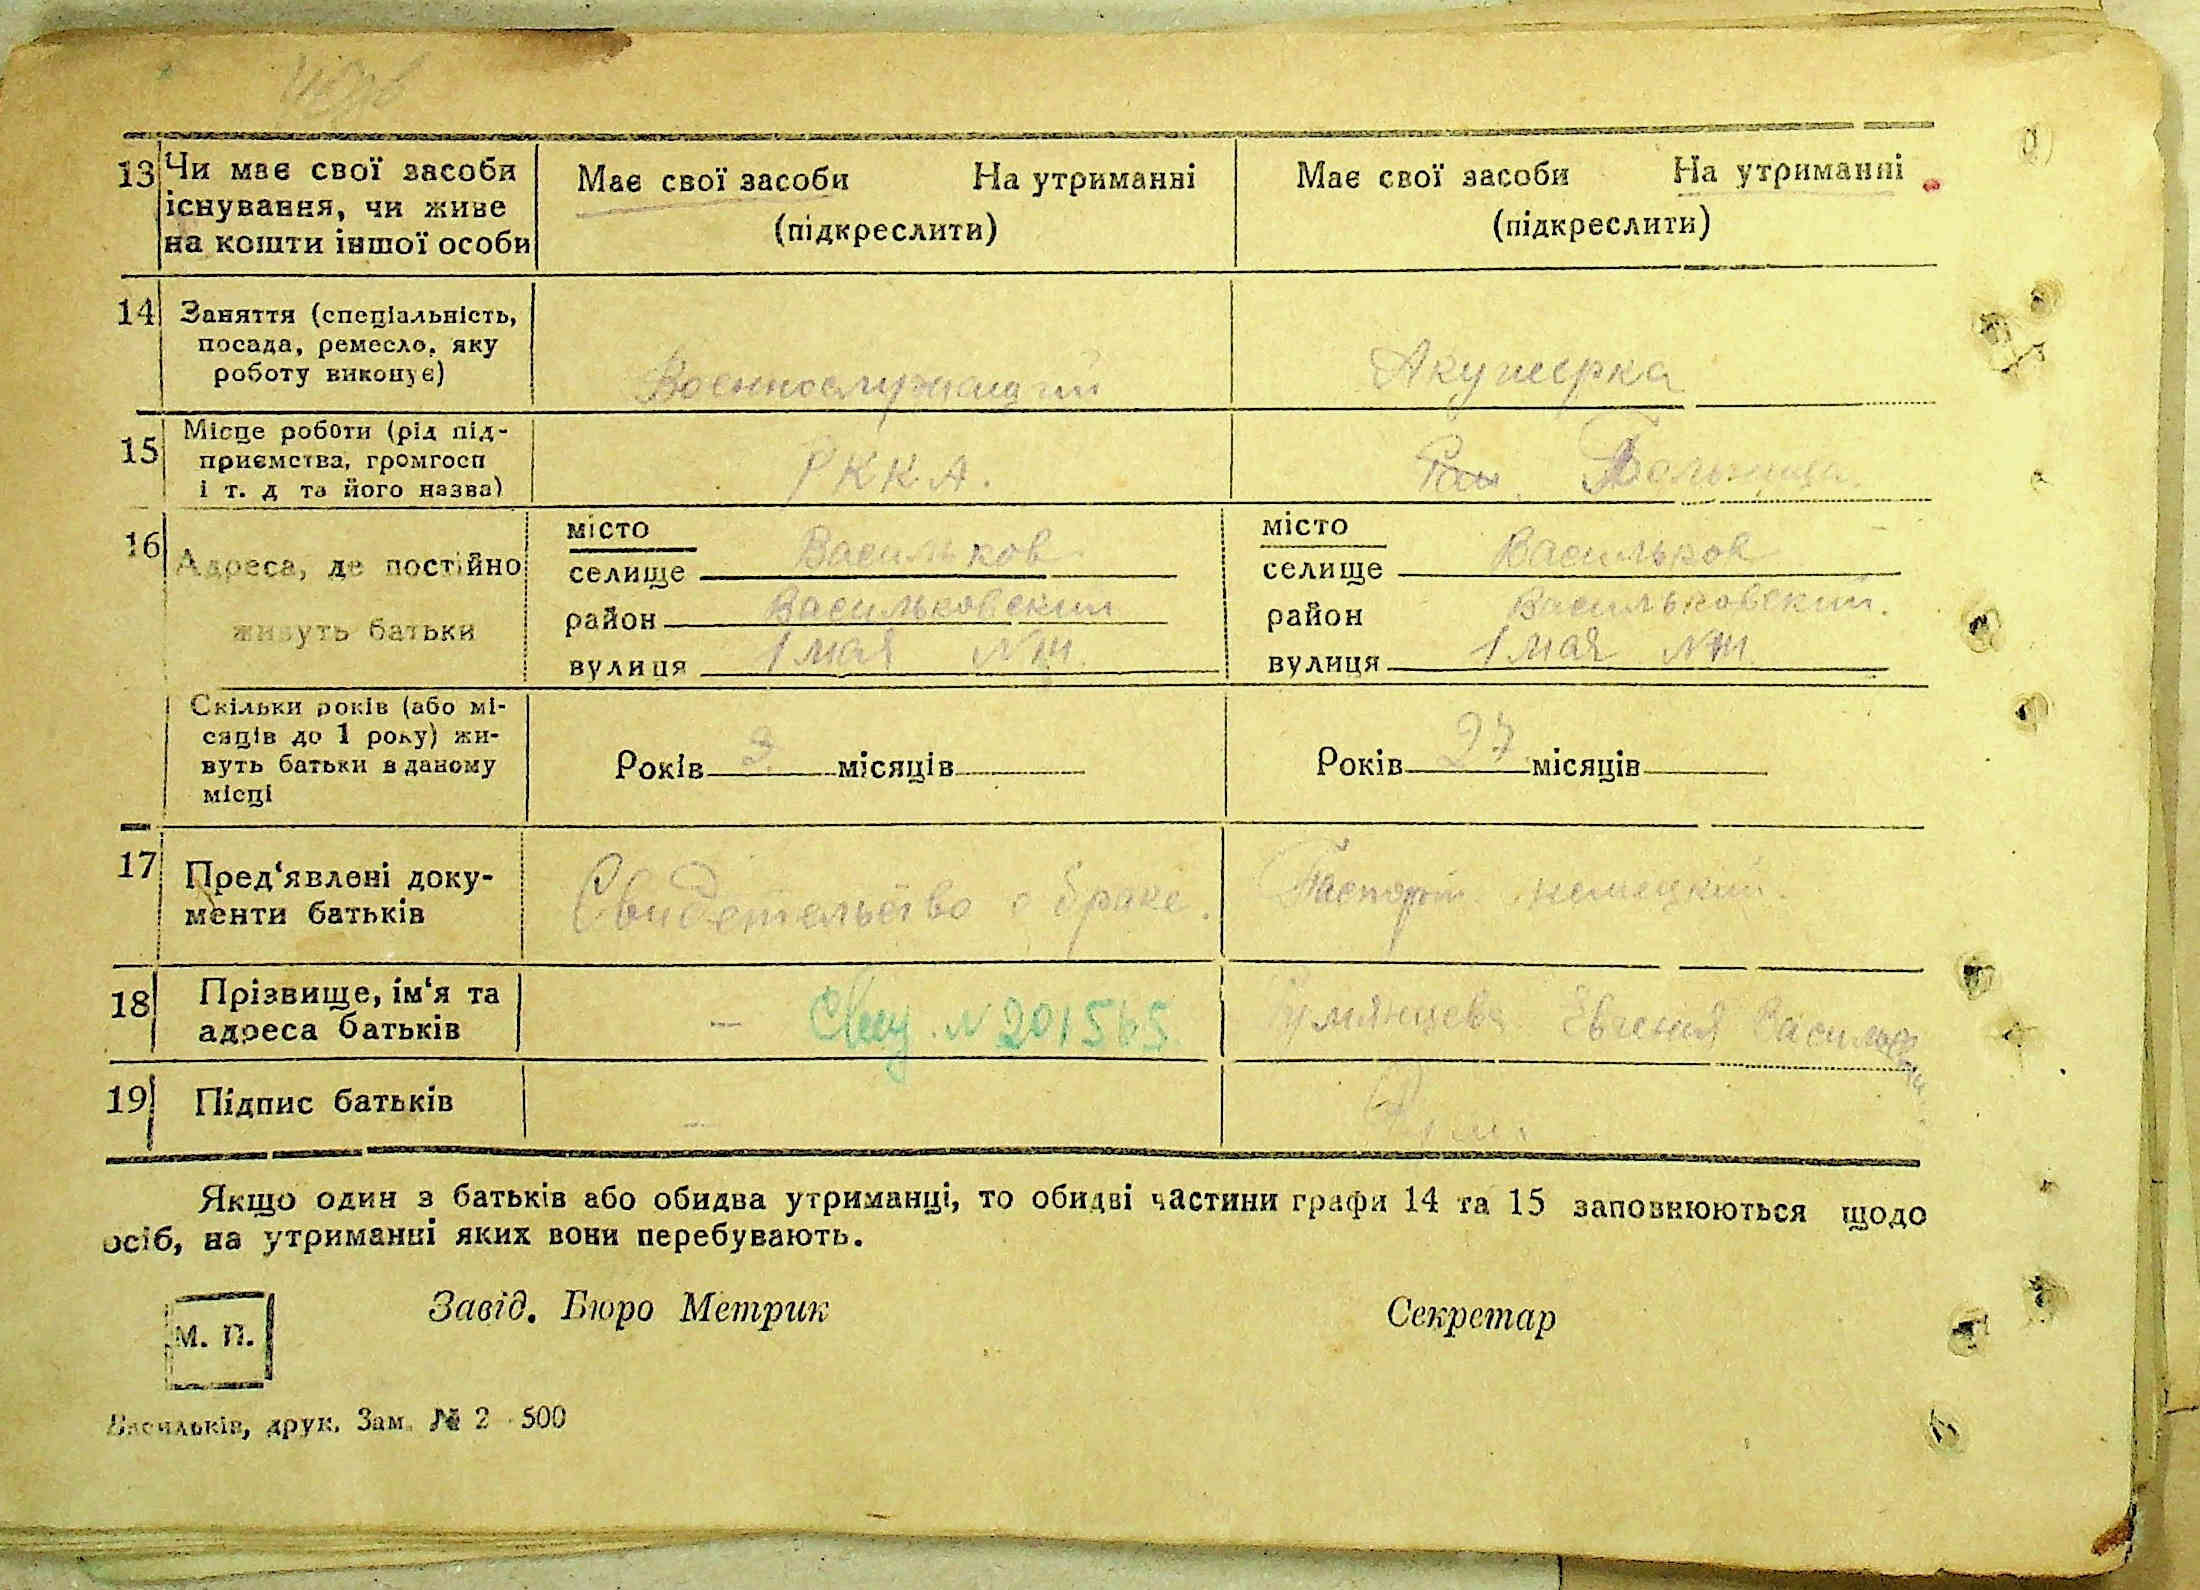 13 Чи має свої засоби Має свої засоби На утриманні Має свої засоби На утриманні
існування, чи живе (підкреслити) (підкреслити)
на кошти іншої особи
14 Заняття (спеціальність,
посада, ремесло, яку
роботу виконує) Военнослужащий Акушерка
15 Місце роботи (рід під-
приємства, громгосп РККА. Больница.
і т. д та його назва)
16 Адреса, де постійно
живуть батьки
місто
селище Васильков
район Васильковский
вулиця 1 мая
місто
селище Васильков
район Васильковский.
вулиця 1 мая
Скільки років (або мі-
сяців до 1 року) жи-
вуть батьки в даному
місці
Років 3 місяців
Років 27 місяців
17 Пред'явлені доку-
менти батьків
Свидетельство о браке.
Паспорт немецкий.
18 Прізвище, ім'я та
адреса батьків
— № 201565
Румянцева Евгения Васильевна
19 Підпис батьків
— Рум.
Якщо один з батьків або обидва утриманці, то обидві частини графи 14 та 15 заповнюються щодо
осіб, на утриманні яких вони перебувають.
М. П.
Завід. Бюро Метрик Секретар
Васильків, друк. Зам. № 2 - 500